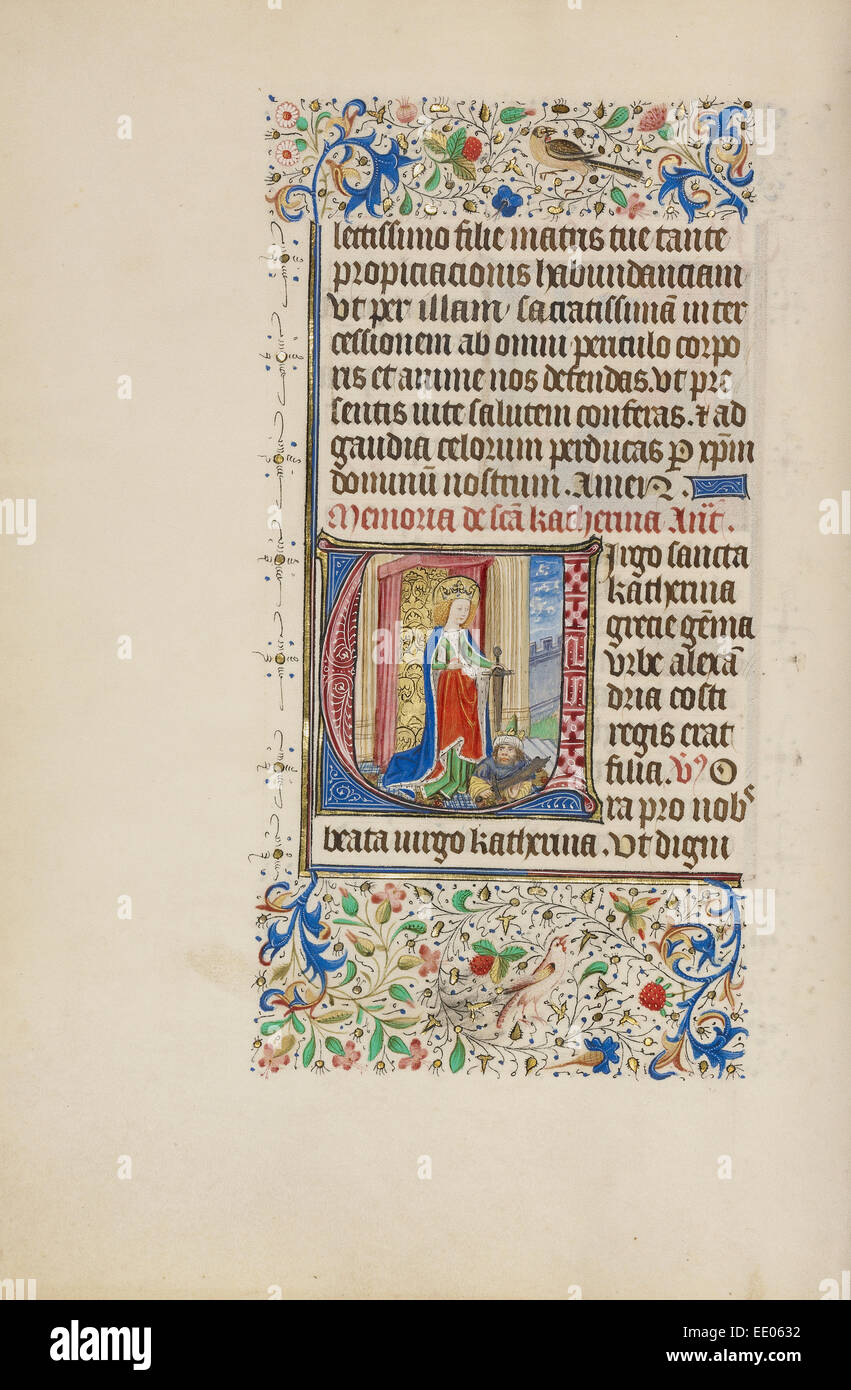 lectissimo filie matris tue tante
propiciacionis habundanciam
vt per illam sacratissimā inter
cessionem ab omni periculo corpo
ris et anime nos defendas. vt pre
sentis uite salutem conferas. & ad
gaudia celorum perducas p xp̄m
dominū nostrum. Amen.
Memoria de scā katherina Añt.
Virgo sancta
katherina
grecie gēma
vrbe alexā
dria costi
regis erat
filia. V O
ra pro nobˢ
beata uirgo katherina. Vt digni
alamy
alamy stock photo
EE0632
www.alamy.com